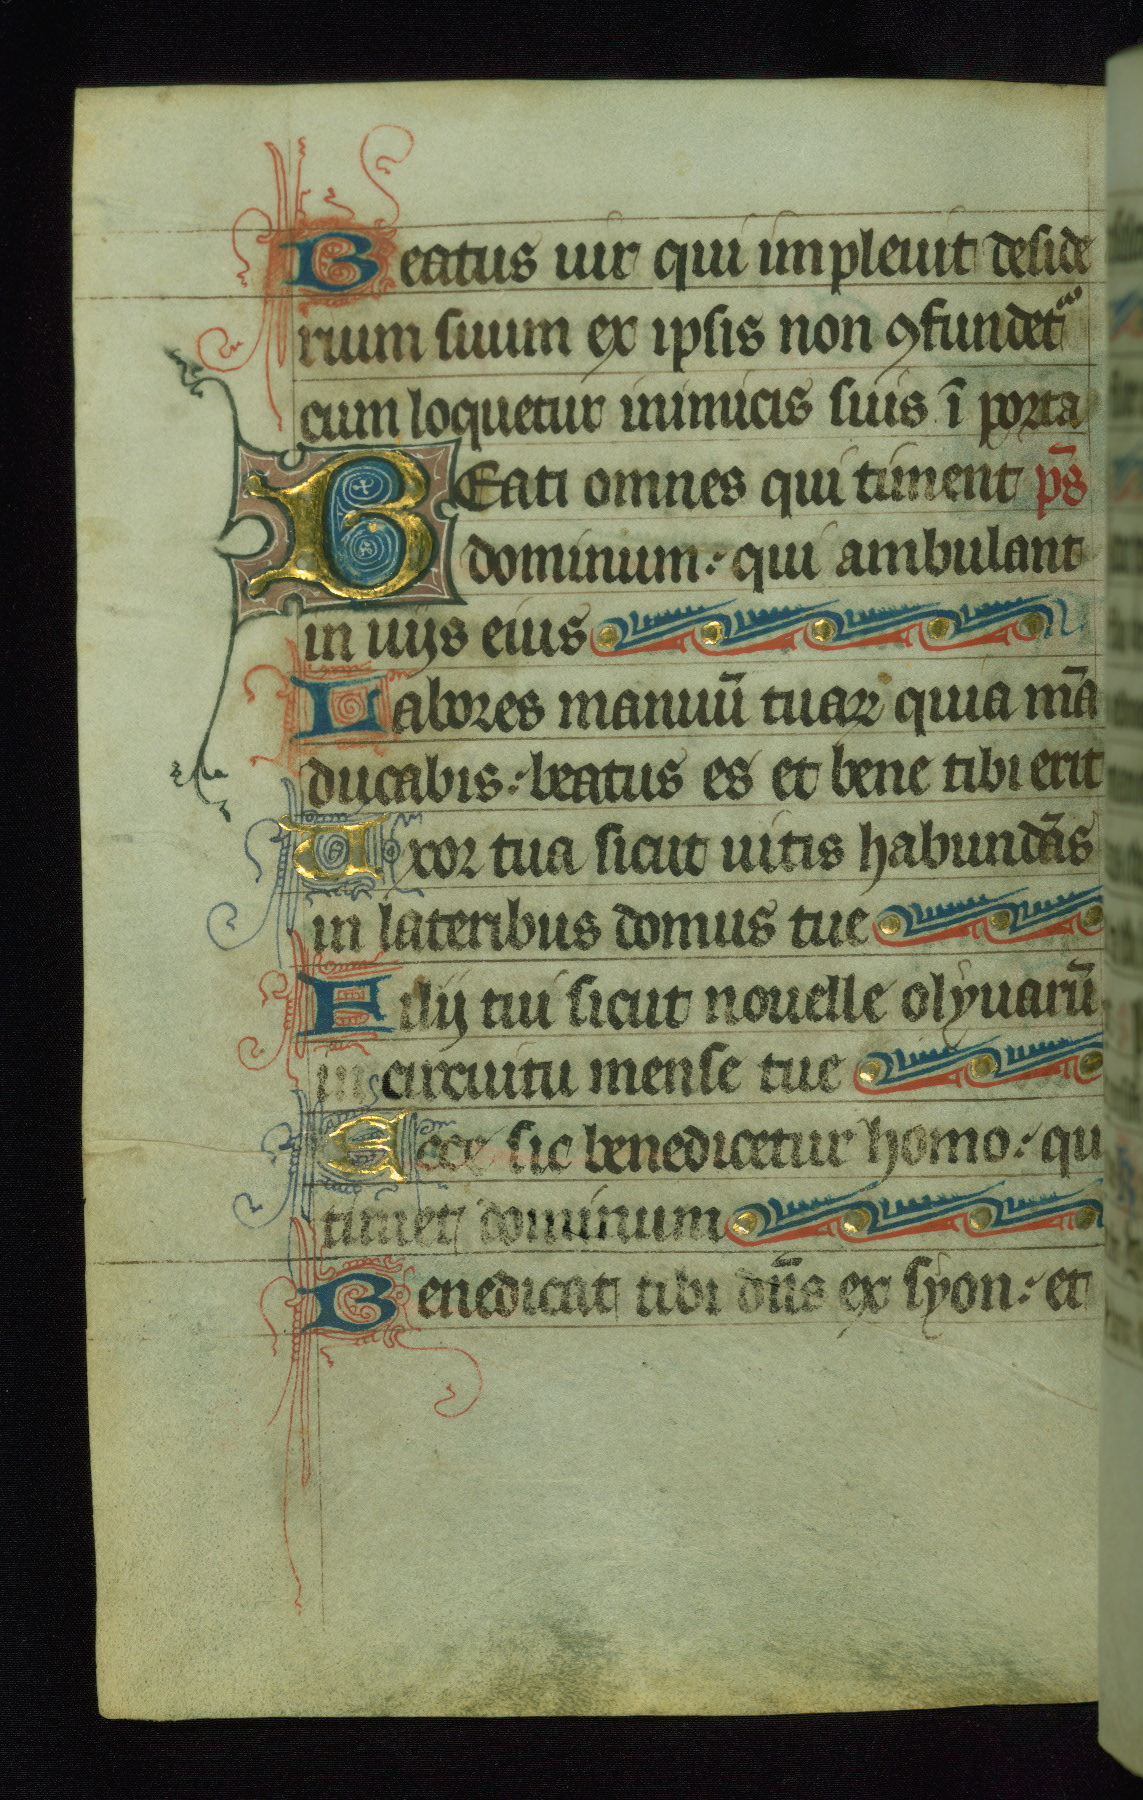 Beatus uir qui impleuit deside
rium suum ex ipsis non ꝯfundetᷣ
cum loquetur inimicis suis ī porta
BEati omnes qui timent p̄s
dominum: qui ambulant
in uijs eius
Labores manuū tuaꝝ quia mā
ducabis: beatus es et bene tibi erit
Uxor tua sicut uitis habundās
in lateribus domus tue
Filij tui sicut nouelle olyuarū
in circuitu mense tue
Ecce sic benedicetur homo: qui
timet dominum
Benedicat tibi dn̄s ex syon: et